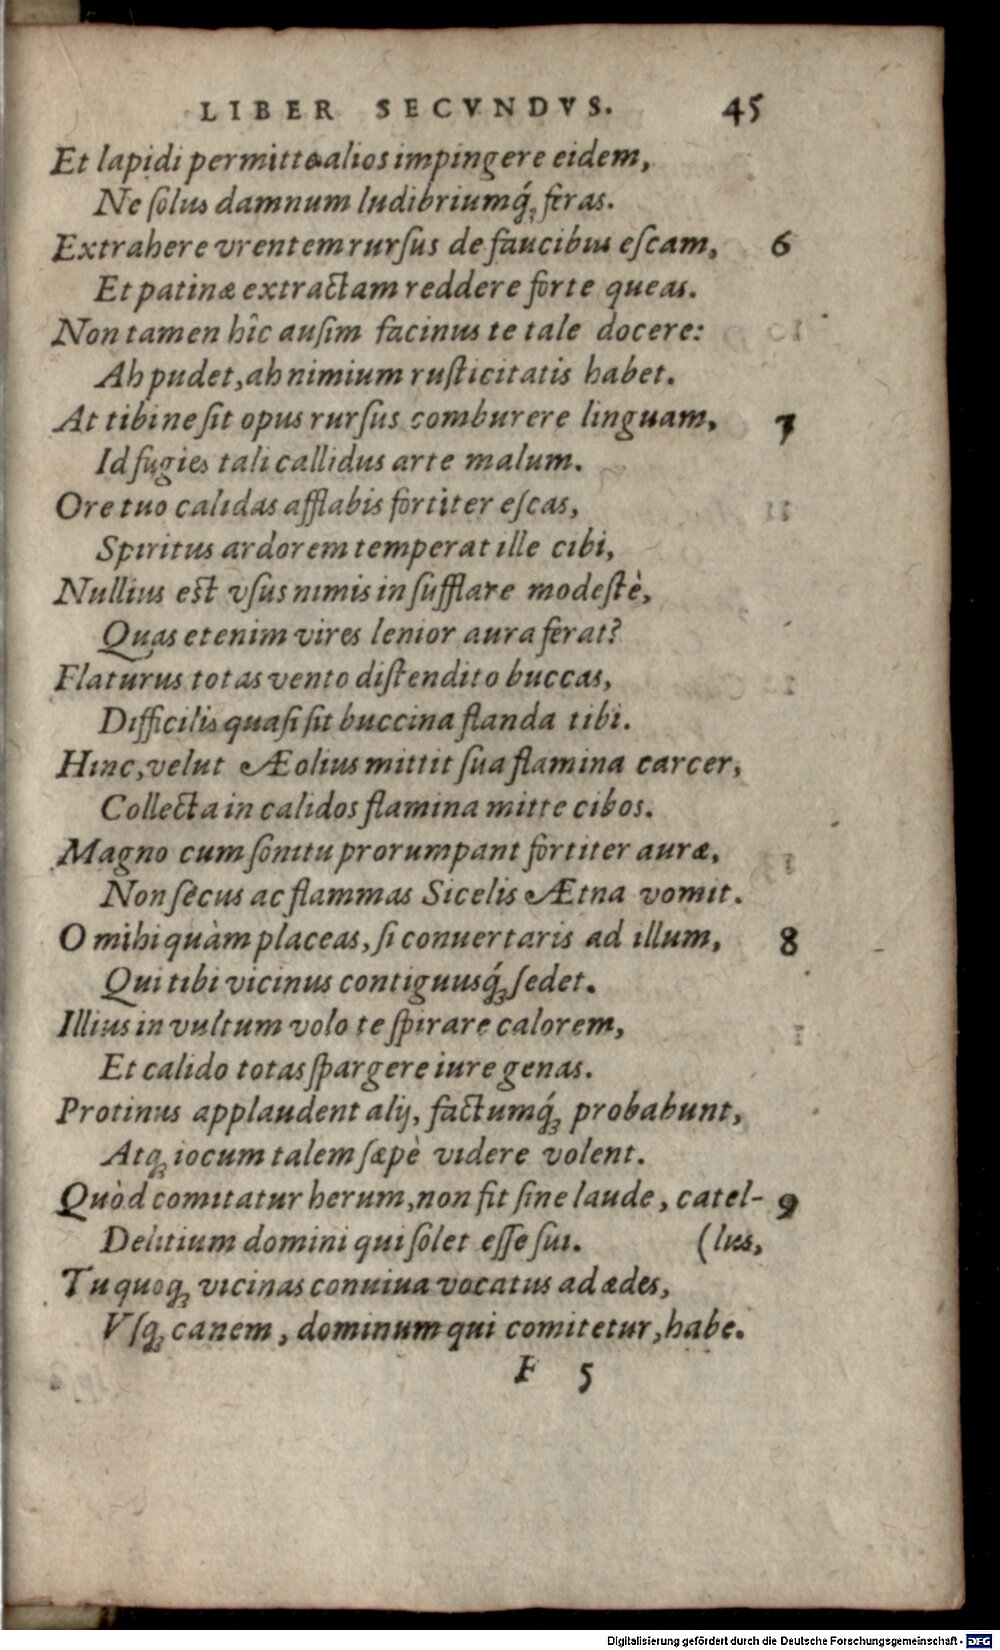 LIBER SECVNDVS. 45
Et lapidi permitte alios impingere eidem,
Ne ſolus damnum ludibriumq́ꝫ feras.
Extrahere vrentem rurſus de faucibus eſcam, 6
Et patinæ extractam reddere forte queas.
Non tamen hîc auſim facinus te tale docere:
Ah pudet, ah nimium ruſticitatis habet.
At tibi ne ſit opus rurſus comburere linguam, 7
Id fugies tali callidus arte malum.
Ore tuo calidas afflabis fortiter eſcas,
Spiritus ardorem temperat ille cibi,
Nullius eſt vſus nimis inſufflare modeſtè,
Quas etenim vires lenior aura ferat?
Flaturus totas vento diſtendito buccas,
Difficilis quaſi ſit buccina flanda tibi.
Hinc, velut Æolius mittit ſua flamina carcer,
Collecta in calidos flamina mitte cibos.
Magno cum ſonitu prorumpant fortiter auræ,
Non ſecus ac flammas Sicelis Ætna vomit.
O mihi quàm placeas, ſi conuertaris ad illum, 8
Qui tibi vicinus contiguusq́ꝫ ſedet.
Illius in vultum volo te ſpirare calorem,
Et calido totas ſpargere iure genas.
Protinus applaudent alij, factumq́ꝫ probabunt,
Atqꝫ iocum talem ſæpè videre volent.
Quòd comitatur herum, non fit ſine laude, catel- 9
Delitium domini qui ſolet eſſe ſui. (lus,
Tu quoqꝫ vicinas conuiua vocatus ad ædes,
Vſqꝫ canem, dominum qui comitetur, habe.
F 5
Digitalisierung gefördert durch die Deutsche Forschungsgemeinschaft - DFG